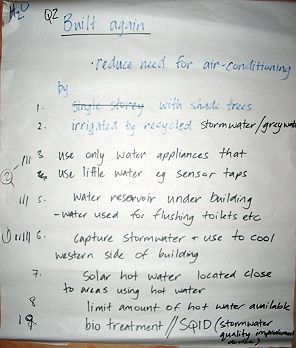 H2O
Q2 Built again
· reduce need for air-conditioning
by
1. single storey with shade trees
2. irrigated by recycled stormwater/greywater
2 /// 3 use only water appliances that
use little water eg sensor taps
/// 5. water reservoir under building
- water used for flushing toilets etc
1 //// 6. capture stormwater + use to cool
western side of building
7. solar hot water located close
to areas using hot water
8 limit amount of hot water available
1 9. bio treatment // SQID (stormwater
quality improvement
device)